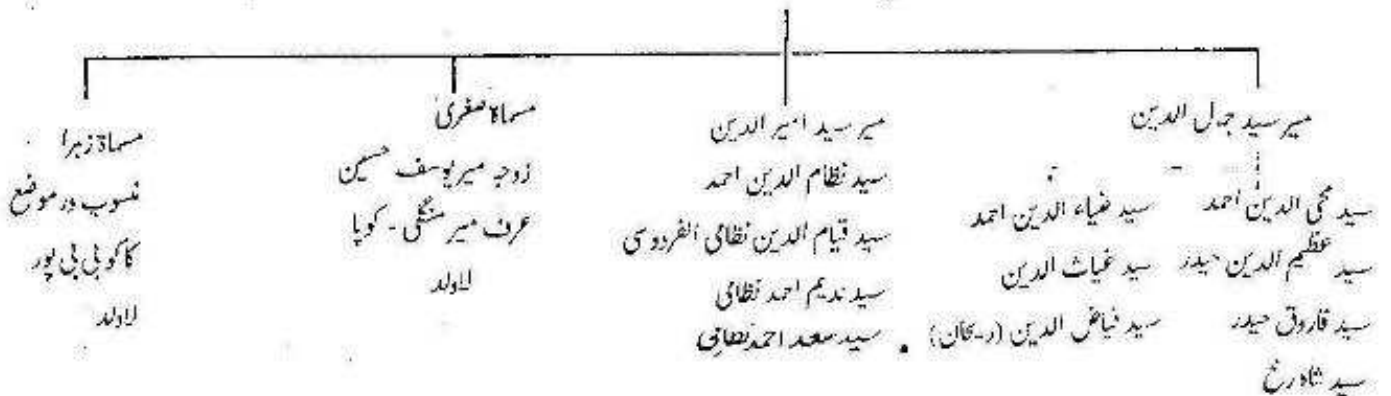 میر سید جمال الدین
سید محی الدین احمد
سید عظیم الدین حیدر
سید فاروق حیدر
سید شاہ رخ
سید ضیاء الدین احمد
سید غیاث الدین
سید فیاض الدین (ریحان)
میر سید امیر الدین
سید نظام الدین احمد
سید قیام الدین نظامی الفردوسی
سید ندیم احمد نظامی
سید سعد احمد نظامی
مسماۃ صغریٰ
زوجہ میر یوسف حسین
عرف میر منگلی - کوپا
لاولد
مسماۃ زہرا
منسوب در موضع
کاکو بی بی پور
لاولد